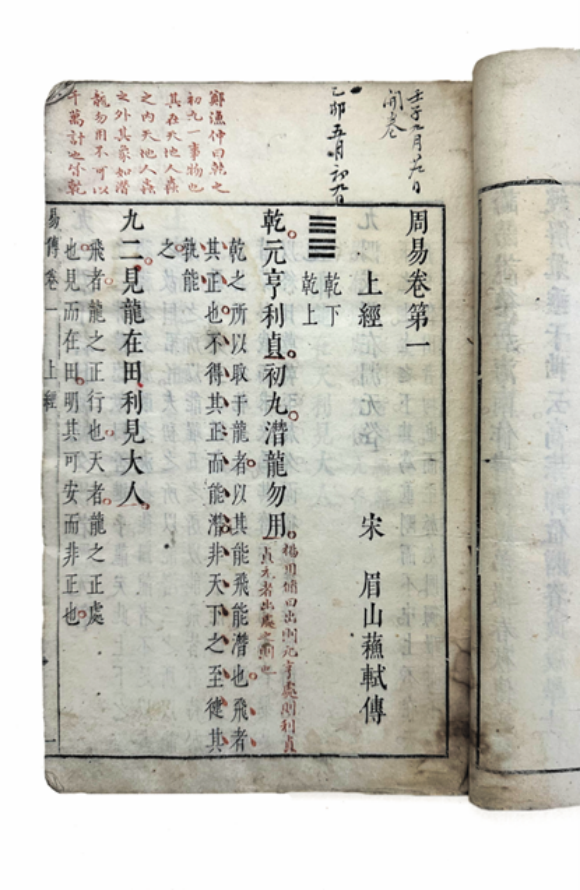 壬子九月
開卷
乙卯五月初九日
鄭漁仲曰乾之
初九一事物也
其在天地人蟲
之內天地人蟲
之外其象如潛
龍勿用不可以
千萬計也
周易卷第一
上經 宋 眉山蘇軾傳
乾下
乾上
乾。元亨利貞。初九。潛龍勿用。
楊用脩曰出則元亨處則利貞
貞元者出處之則也
乾之所以取于龍者。以其能飛能潛也。飛者
其正也。不得其正而能潛。非天下之至健。其
孰能
之。
九二。見龍在田。利見大人。
飛者。龍之正行也。天者。龍之正處
也。見而在田。明其可安而非正也。
易傳卷一 上經 一